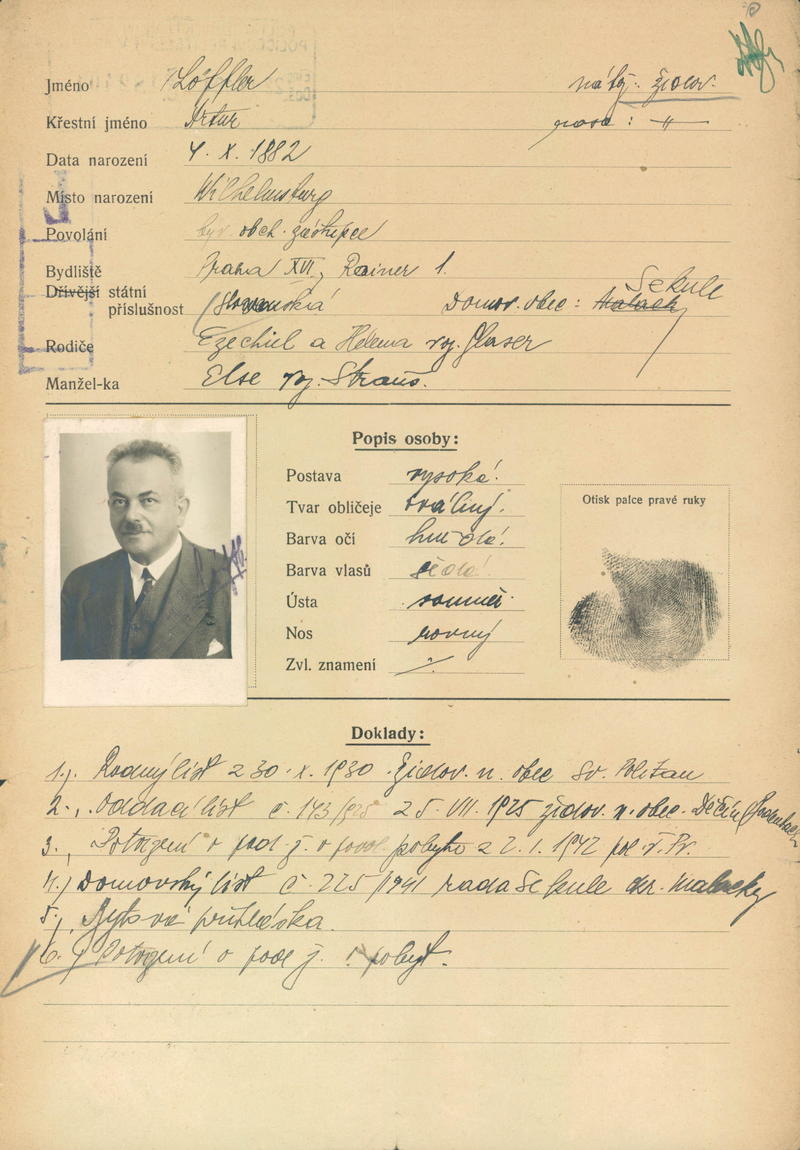 Jméno Löffler nábž. židov.
Křestní jméno Artur rasa : –〃–
Data narození 4. X. 1882
Místo narození Wilhelmsburg
Povolání býv. obch. zástupce
Bydliště Praha XVI, Rainer 1.
Dřívější státní příslušnost Slovenská Domov. obec : Malack Sekule
Rodiče Ezechiel a Helena roz. Glaser
Manžel-ka Else roz. Straus.
Popis osoby:
Postava vysoká.
Tvar obličeje oválný.
Barva očí hnědá.
Barva vlasů šedá.
Ústa souměr.
Nos rovný
Zvl. znamení
Otisk palce pravé ruky
Doklady:
1., Rodný list z 30. X. 1930 židov. n. obec Sv. Pölten
2., Oddací list č. 143/925 z 5. VII. 1925 židov. n. obec. Děčín (
3., Potvrzení o pod. ž. o povol. pobytu z 2. 1. 1942 pol. ř. Pr.
4.) Domovský list č. 225/1941 rada Sekule okr. Malacky
5., Bytová přihláška.
6.) Potvrzení o pod. ž. pobyt.